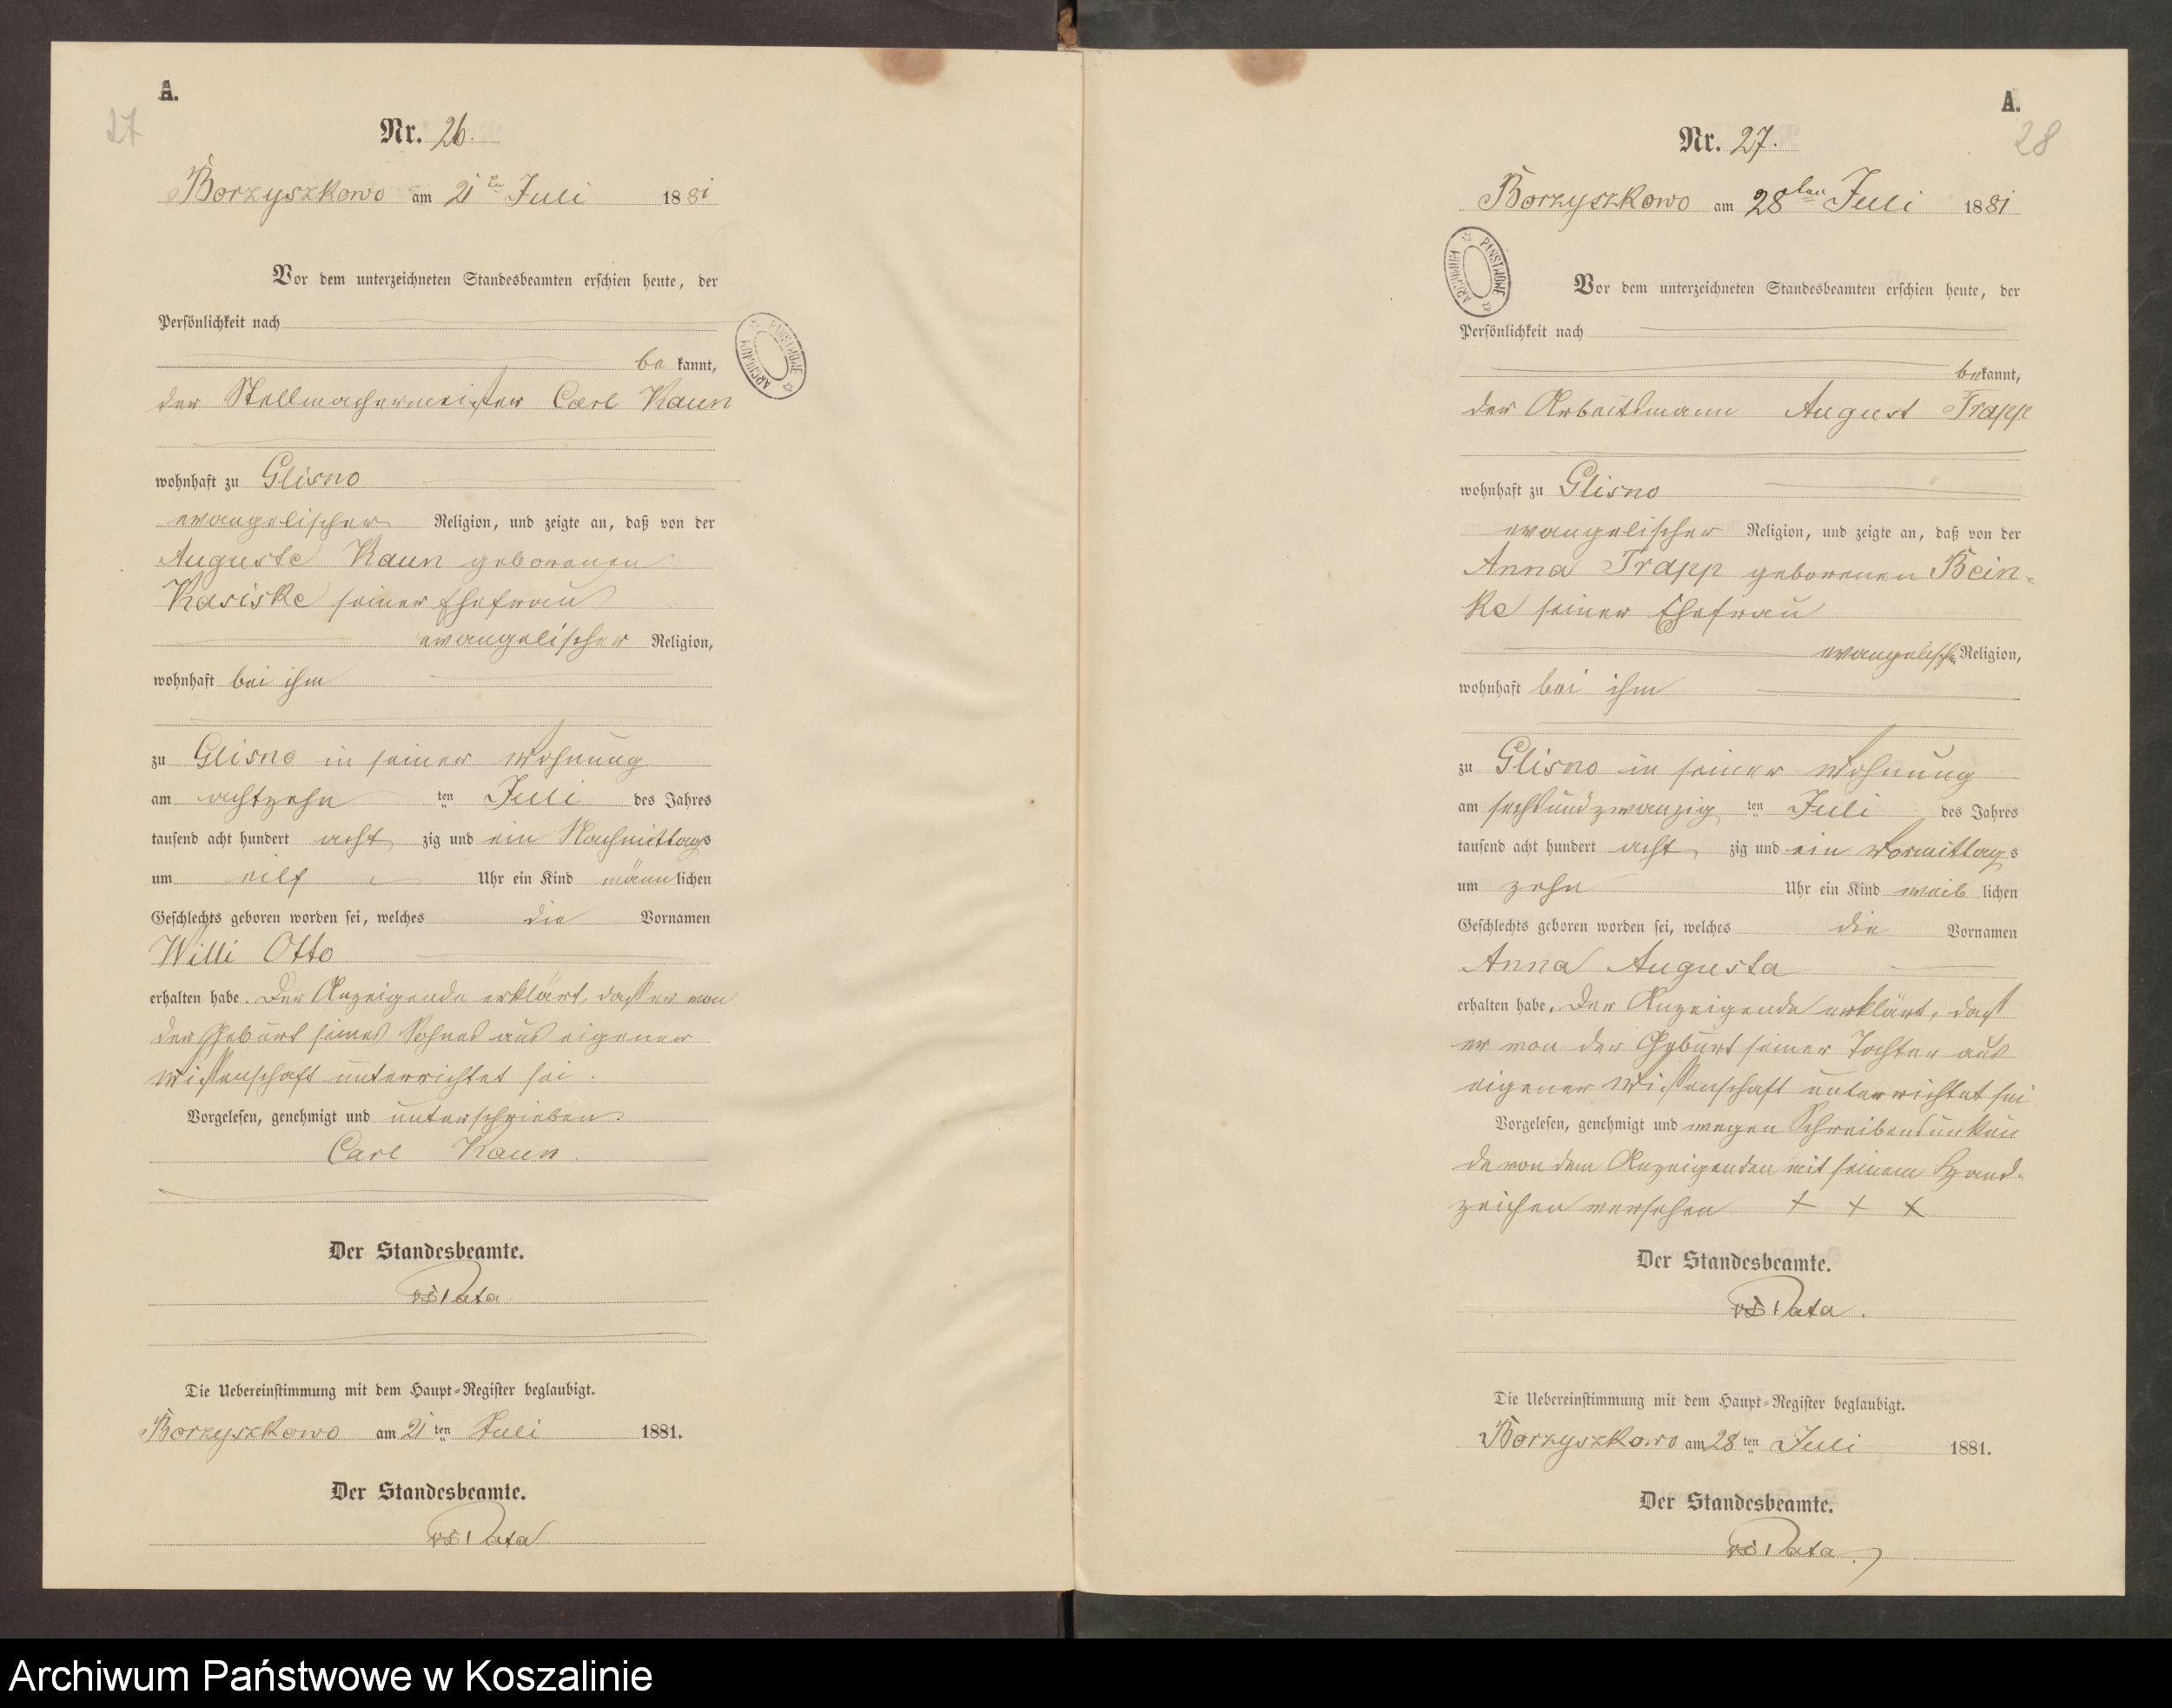 A.
27
Nr. 26.
Borzyszkowo am 21ten Juli 1881
Vor dem unterzeichneten Standesbeamten erschien heute, der
Persönlichkeit nach
be kannt,
der Stellmachermeister Carl Kaun
wohnhaft zu Glisno
evangelischer Religion, und zeigte an, daß von der
Auguste Kaun geborenen
Kasiske seiner Ehefrau
evangelischer Religion,
wohnhaft bei ihm
zu Glisno in seiner Wohnung
am achtzehn ten Juli des Jahres
tausend acht hundert acht zig und ein Nachmittags
um eilf Uhr ein Kind männlichen
Geschlechts geboren worden sei, welches die Vornamen
Willi Otto
erhalten habe. Der Anzeigende erklärt, daß er von
der Geburt seines Sohnes aus eigener
Wissenschaft unterrichtet sei.
Vorgelesen, genehmigt und unterschrieben.
Carl Kaun.
Der Standesbeamte.
Die Uebereinstimmung mit dem Haupt-Register beglaubigt.
Borzyszkowo am 21ten Juli 1881.
Der Standesbeamte.
ARCHIWUM PAŃSTWOWE
A.
28
Nr. 27.
Borzyszkowo am 28ten Juli 1881
ARCHIWUM PAŃSTWOWE
Vor dem unterzeichneten Standesbeamten erschien heute, der
Persönlichkeit nach
bekannt,
der Arbeitsmann August Trapp
wohnhaft zu Glisno
evangelischer Religion, und zeigte an, daß von der
Anna Trapp geborenen Bein-
ke seiner Ehefrau
evangelischer Religion,
wohnhaft bei ihm
zu Glisno in seiner Wohnung
am sechsundzwanzig ten Juli des Jahres
tausend acht hundert acht zig und ein Vormittags
um zehn Uhr ein Kind weib lichen
Geschlechts geboren worden sei, welches die Vornamen
Anna Augusta
erhalten habe. Der Anzeigende erklärt, daß
er von der Geburt seiner Tochter aus
eigener Wissenschaft unterrichtet sei
Vorgelesen, genehmigt und wegen Schreibensunkun
de von dem Anzeigenden mit seinem Hand-
zeichen versehen + + +
Der Standesbeamte.
Die Uebereinstimmung mit dem Haupt-Register beglaubigt.
Borzyszkowo am 28ten Juli 1881.
Der Standesbeamte.
Archiwum Państwowe w Koszalinie